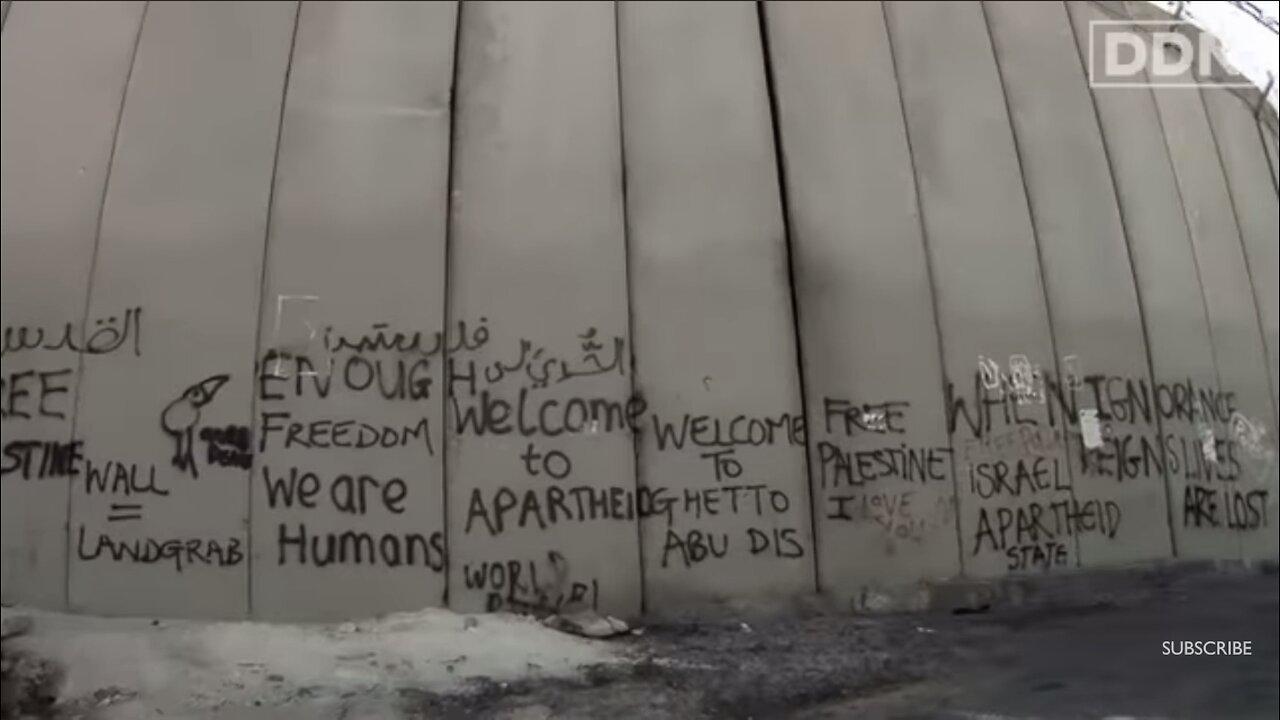 DDN
القدس
EE
STINE
WALL
=
LANDGRAB
ENOUGH
FREEDOM
We are
Humans
Welcome
to
APARTHEID
WORLD
WELCOME
TO
GHETTO
ABU DIS
FREE
PALESTINE
I LOVE
YOU
ISRAEL
APARTHEID
STATE
WHEN IGNORANCE
REIGNS LIVES
ARE LOST
SUBSCRIBE